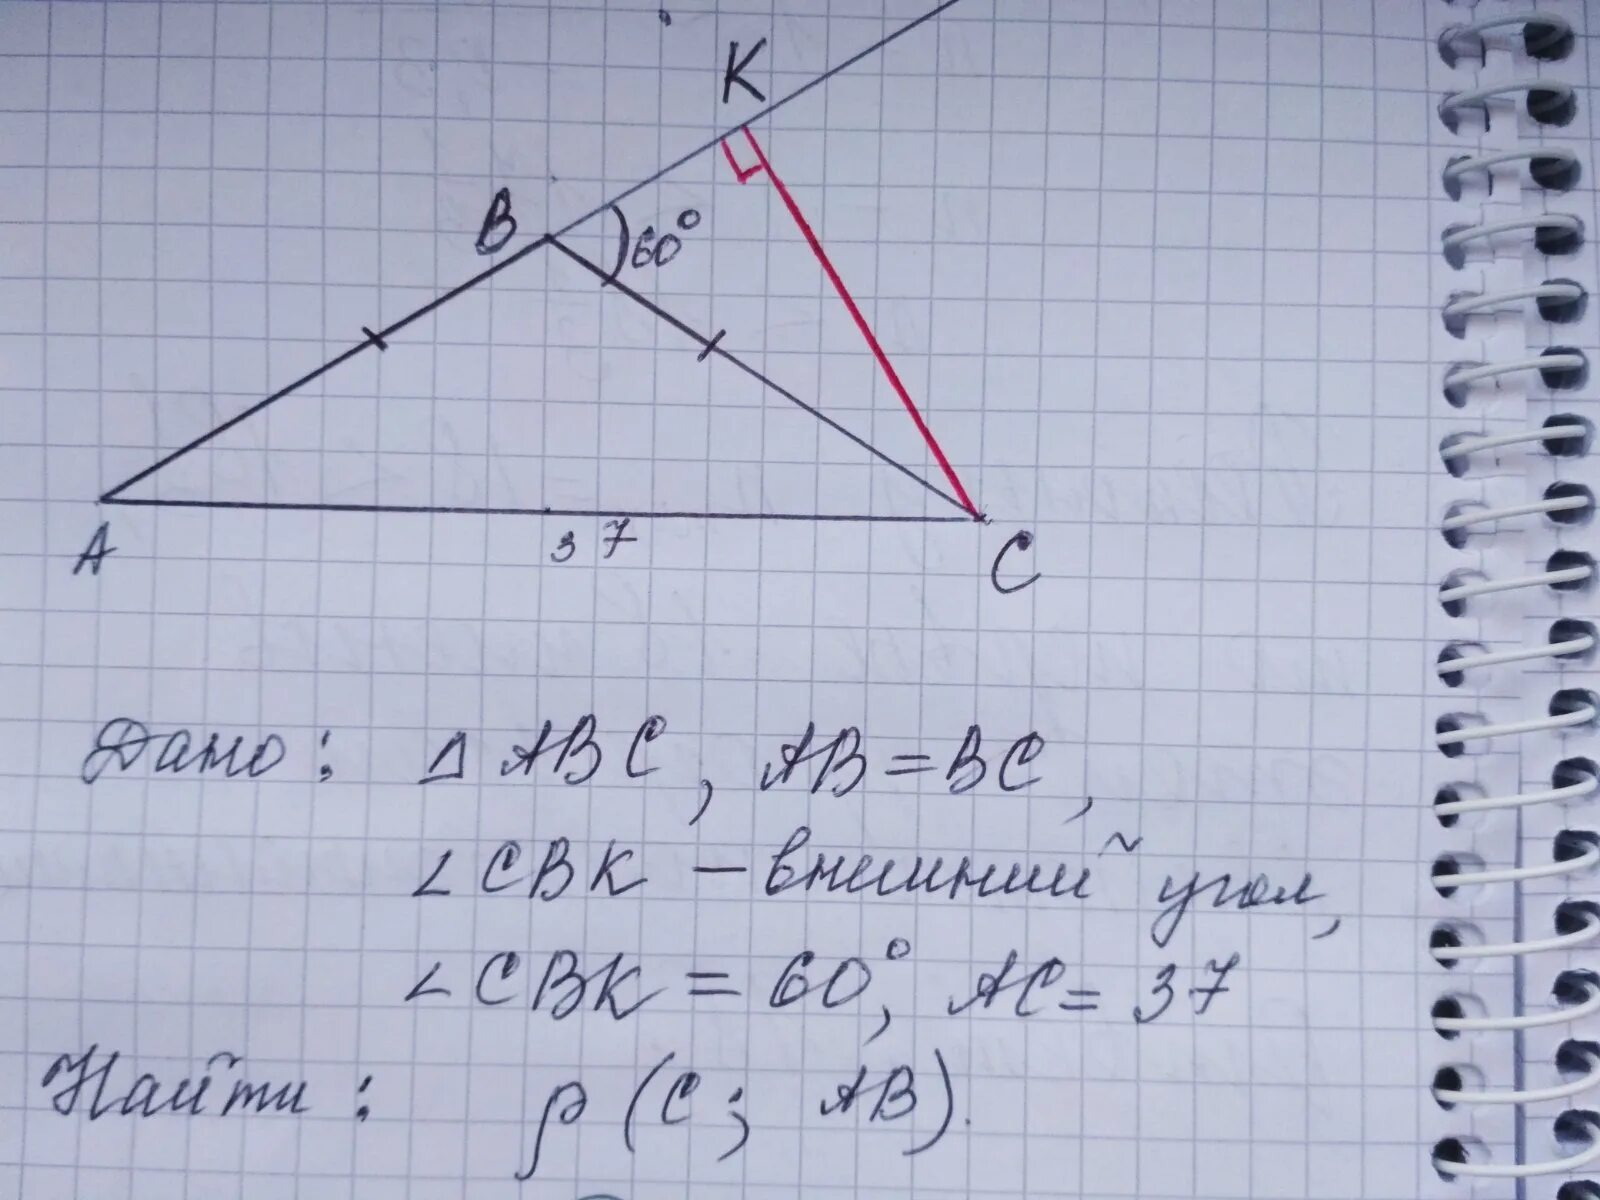 K
B
60°
A
37
C
Дано: Δ ABC, AB = BC,
∠CBK – внешний угол,
∠CBK = 60°, AC = 37
Найти: ρ (C; AB).